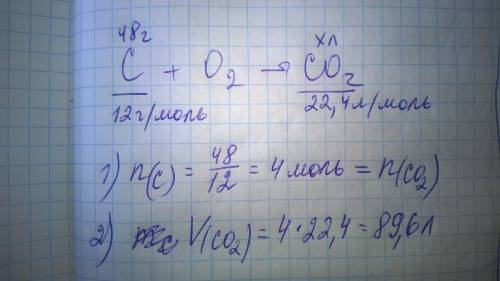 48г xл
C + O₂ → CO₂
12г/моль 22,4л/моль
1) n(C) = 48/12 = 4 моль = n(CO₂)
2) V(CO₂) = 4·22,4 = 89,6л